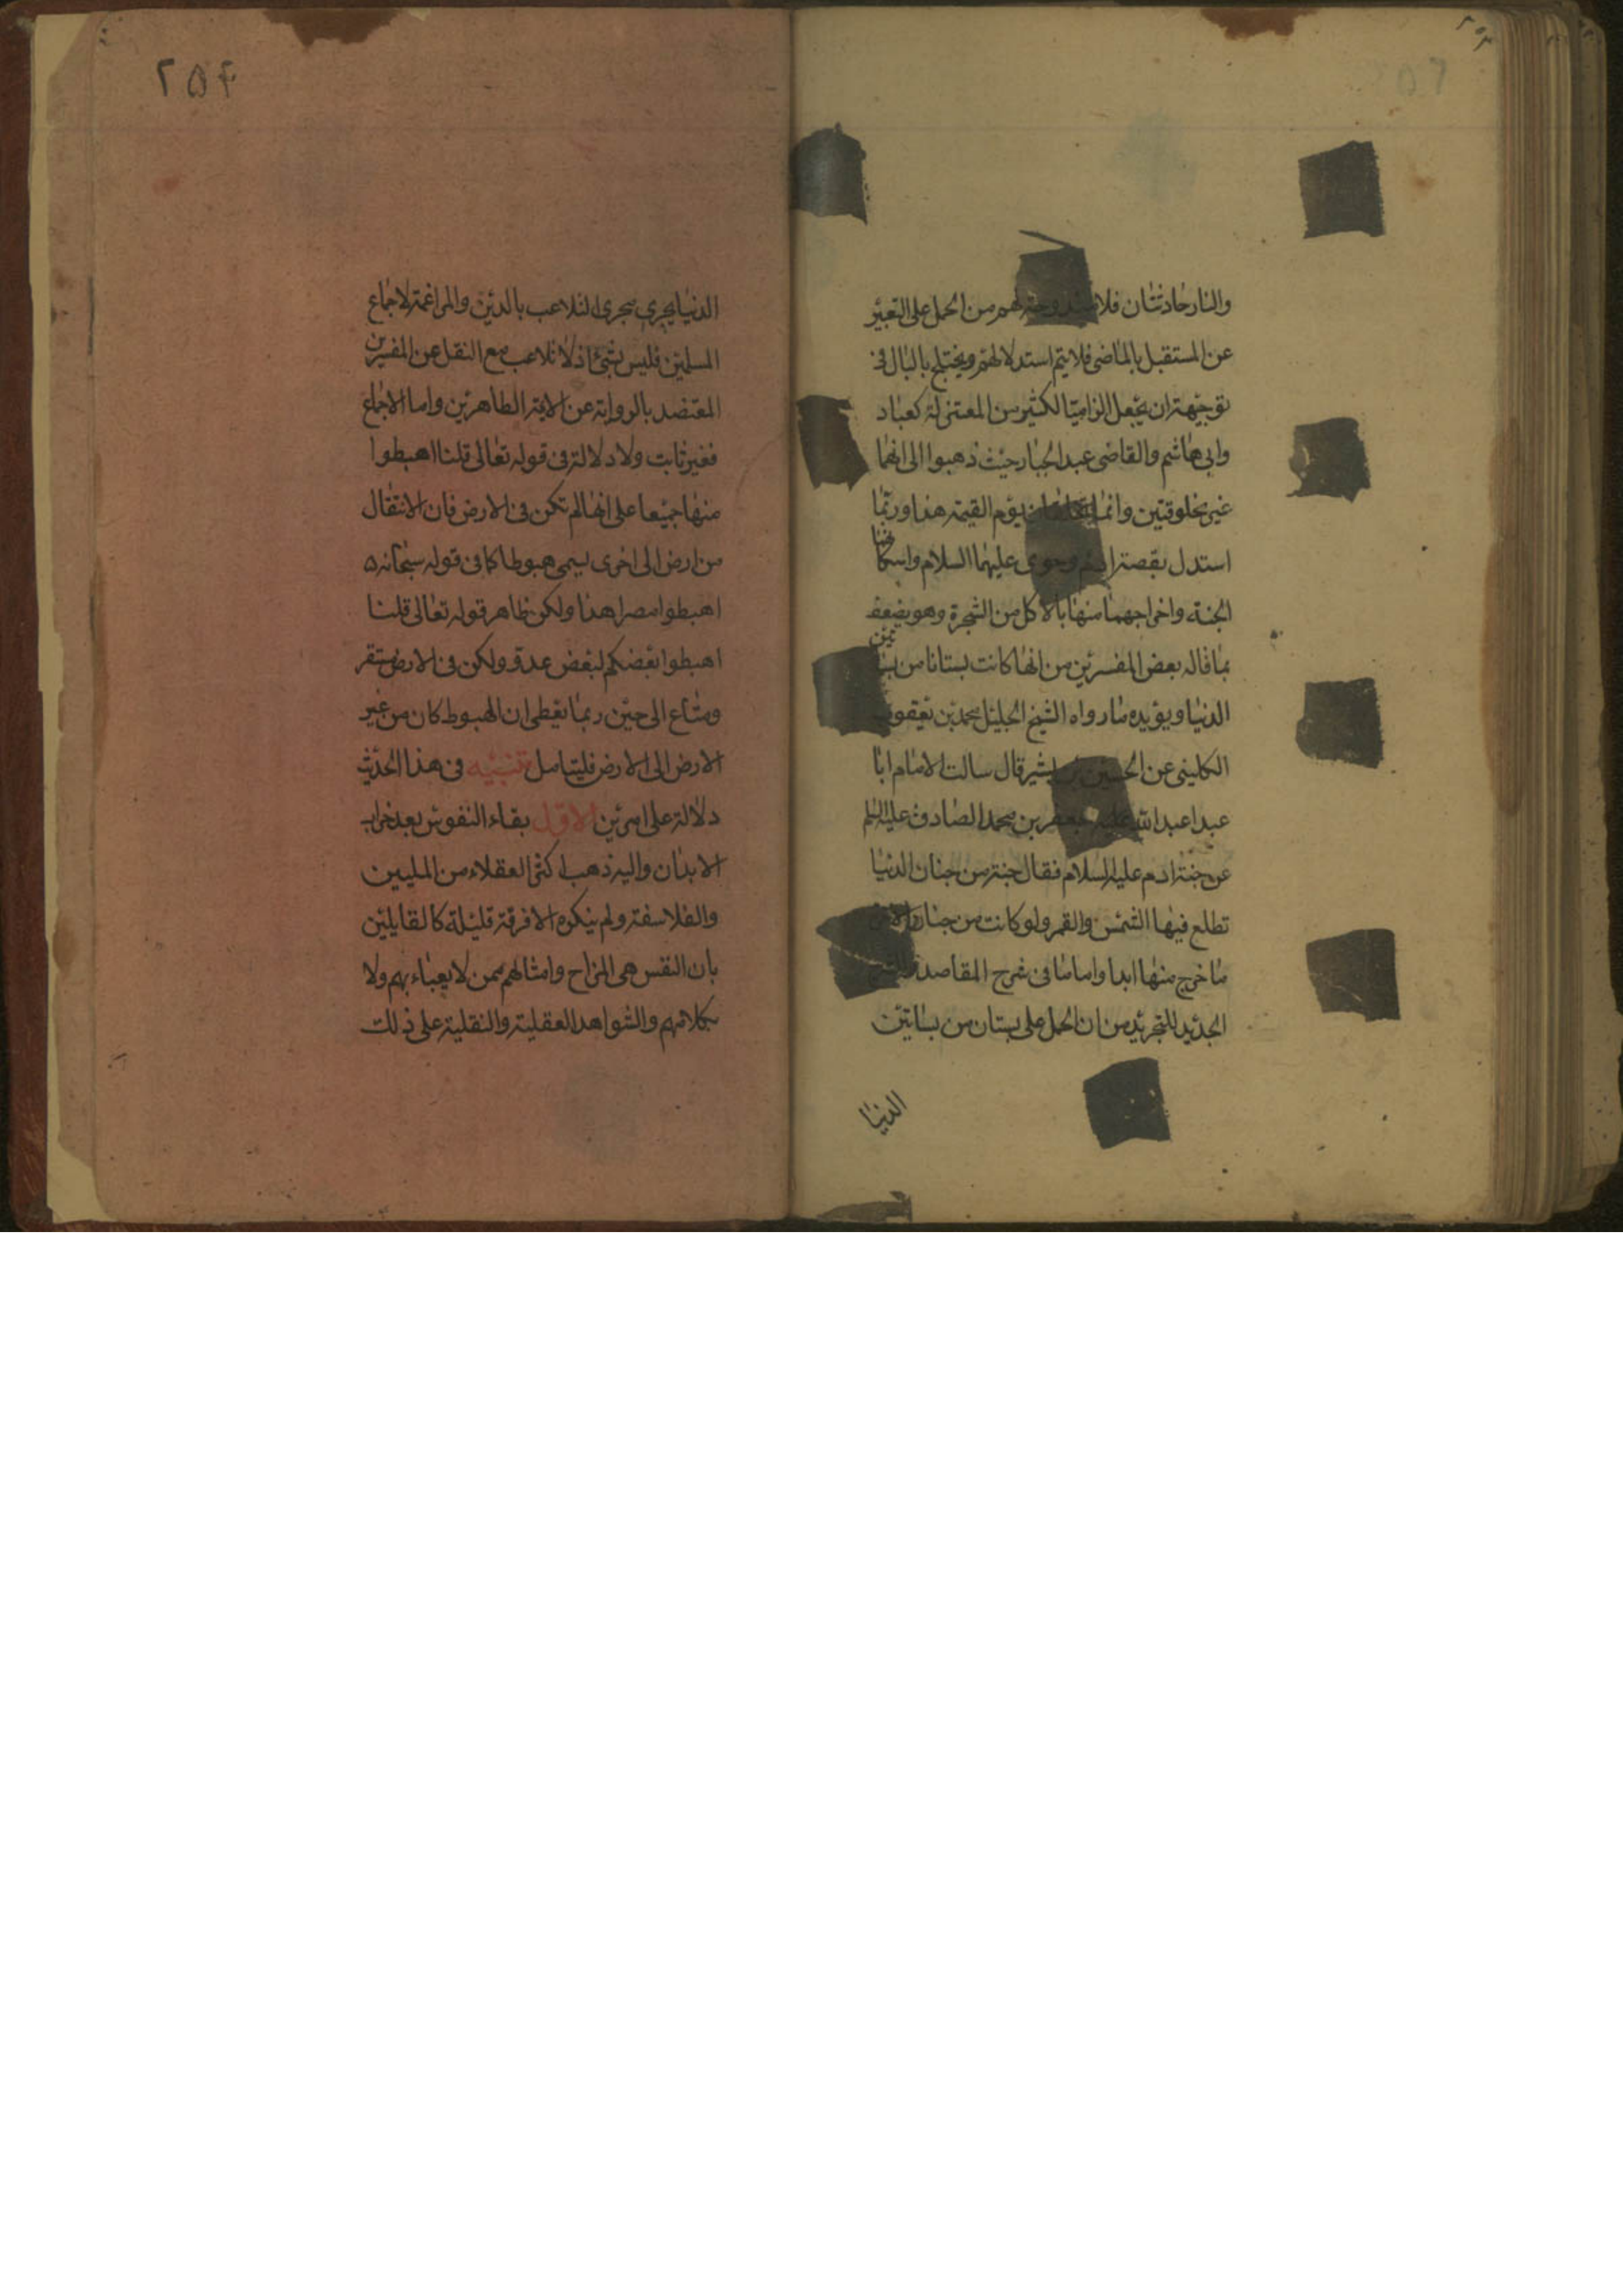 والنار حادثتان فلا مندوحة لهم من الحمل على التعبير
عن المستقبل بالماضى فلا يتم استدلالهم ويختلج بالبال فى
توجيهه ان يجعل الزاميا لكثير من المعتزلة كعباد
وابى هاشم والقاضى عبد الجبار حيث ذهبوا الى انهما
غير مخلوقتين وانما تخلقان يوم القيمة هذا وربما
استدل بقصة ادم وحوى عليهما السلام واسكانهما
الجنة واخراجهما منها بالاكل من الشجرة وهو يضعف
بما قاله بعض المفسرين من انها كانت بستانا من بساتين
الدنيا ويؤيده ما رواه الشيخ الجليل محمد بن يعقوب
الكلينى عن الحسين بن بشير قال سالت الامام ابا
عبدا عبد الله جعفر بن محمد الصادق عليه السلم
عن جنة ادم عليه السلام فقال جنة من جنان الدنيا
تطلع فيها الشمس والقمر ولو كانت من جنان الاخرة
ما خرج منها ابدا واما ما فى شرح المقاصد والشرح
الجديد للتجريد من ان الحمل على بستان من بساتين
الدنيا
٢٥٤
الدنيا يجرى مجرى التلاعب بالدين والمراغمة لاجماع
المسلمين فليس بشئ اذ لا تلاعب مع النقل عن المفسرين
المعتضد بالرواية عن الائمة الطاهرين واما الاجماع
فغير ثابت ولا دلالة فى قوله تعالى قلنا اهبطوا
منها جميعا على انها لم تكن فى الارض فان الانتقال
من ارض الى اخرى يسمى هبوطا كما فى قوله سبحانه
اهبطوا مصرا هذا ولكن ظاهر قوله تعالى قلنا
اهبطوا بعضكم لبعض عدو ولكن فى الارض مستقر
ومتاع الى حين ربما يعطى ان الهبوط كان من غير
الارض الى الارض فليتامل تنبيه فى هذا الحديث
دلالة على امرين الاول بقاء النفوس بعد خراب
الابدان واليه ذهب اكثر العقلاء من المليين
والفلاسفة ولم ينكره الا فرقة قليلة كالقايلين
بان النفس هى المزاح وامثالهم ممن لا يعباء بهم ولا
بكلامهم والشواهد العقلية والنقلية على ذلك